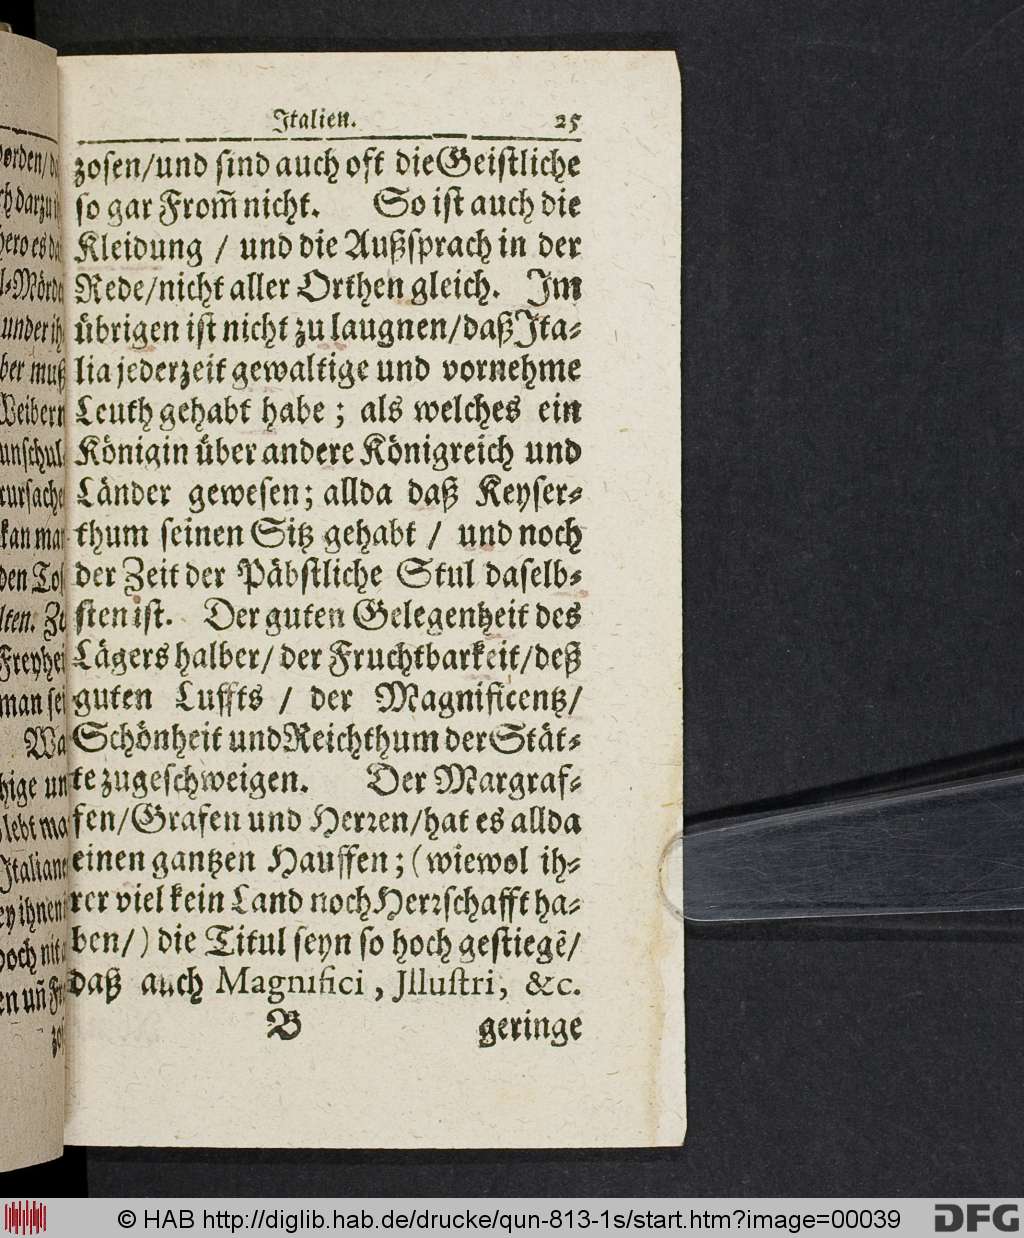 Italien. 25
zosen/und sind auch oft die Geistliche
so gar From̃ nicht. So ist auch die
Kleidung / und die Außsprach in der
Rede/nicht aller Orthen gleich. Im
übrigen ist nicht zu laugnen/daß Ita-
lia jederzeit gewaltige und vornehme
Leuth gehabt habe; als welches ein
Königin über andere Königreich und
Länder gewesen; allda daß Keyser-
thum seinen Sitz gehabt / und noch
der Zeit der Päbstliche Stul daselb-
sten ist. Der guten Gelegenheit des
Lägers halber/ der Fruchtbarkeit/deß
guten Luffts / der Magnificentz/
Schönheit und Reichthum der Stät-
te zugeschweigen. Der Margraf-
fen/Grafen und Herren/hat es allda
einen gantzen Hauffen; (wiewol ih-
rer viel kein Land noch Herrschafft ha-
ben/) die Titul seyn so hoch gestiegẽ/
daß auch Magnifici, Jllustri, &c.
B geringe
© HAB http://diglib.hab.de/drucke/qun-813-1s/start.htm?image=00039
DFG